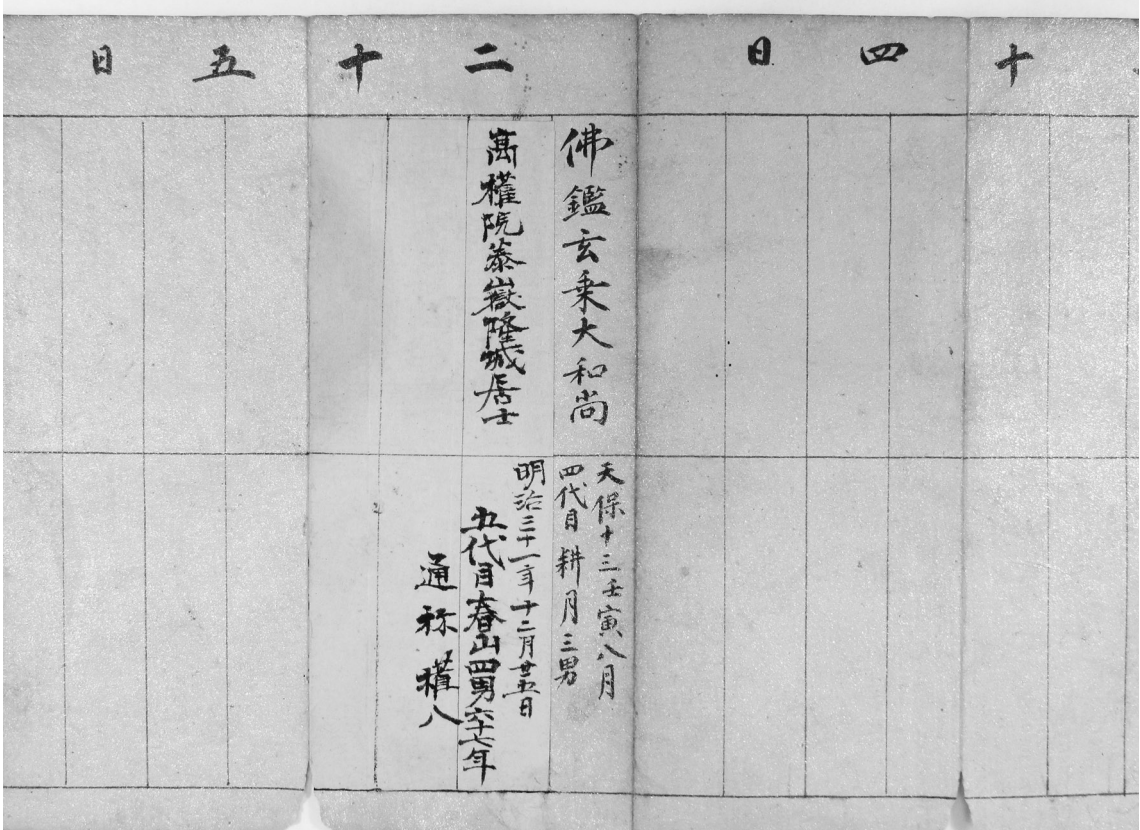 十四日
二十五日
佛鑑玄乗大和尚
天保十三壬寅八月
四代目耕月三男
高權院泰嶽隆城居士
明治三十一年十二月廿五日
五代目春山四男六十七年
通称權八